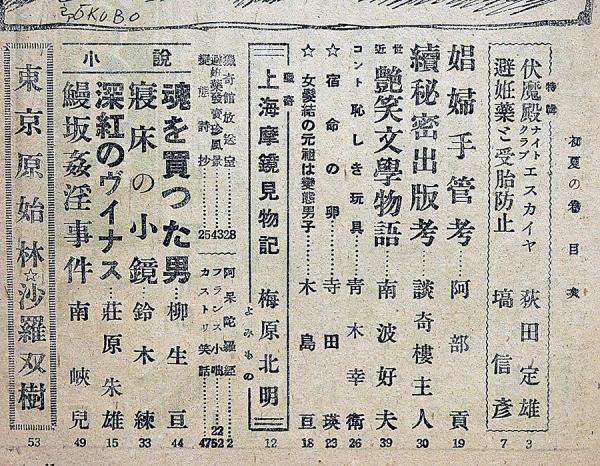 初夏の巻 目次
特輯
伏魔殿ナイトクラブ エスカイヤ 荻田定雄 3
避妊薬と受胎防止 塙信彦 7
娼婦手管考……阿部貢 19
續秘密出版考……談奇樓主人 30
近世 艶笑文學物語……南波好夫 39
コント 恥しき玩具……青木幸衛 26
☆宿命の卵……寺田瑛 23
☆女髮結の元祖は變態男子……木島亘 18
獵奇 上海摩鏡見物記 梅原北明 12
よみもの
獵奇館放送室……28
避妊藥發賣珍風景……43
擬態詩抄……25
阿呆陀羅經……2
フランス小咄……22
カストリ笑話 4752
小說
魂を買つた男……柳生亘 44
寢床の小鏡……鈴木練 33
深紅のヴイナス……莊原朱雄 15
鰻坂姦淫事件 南峽兒 49
東京原始林☆沙羅双樹 53
ΖŌKOBO